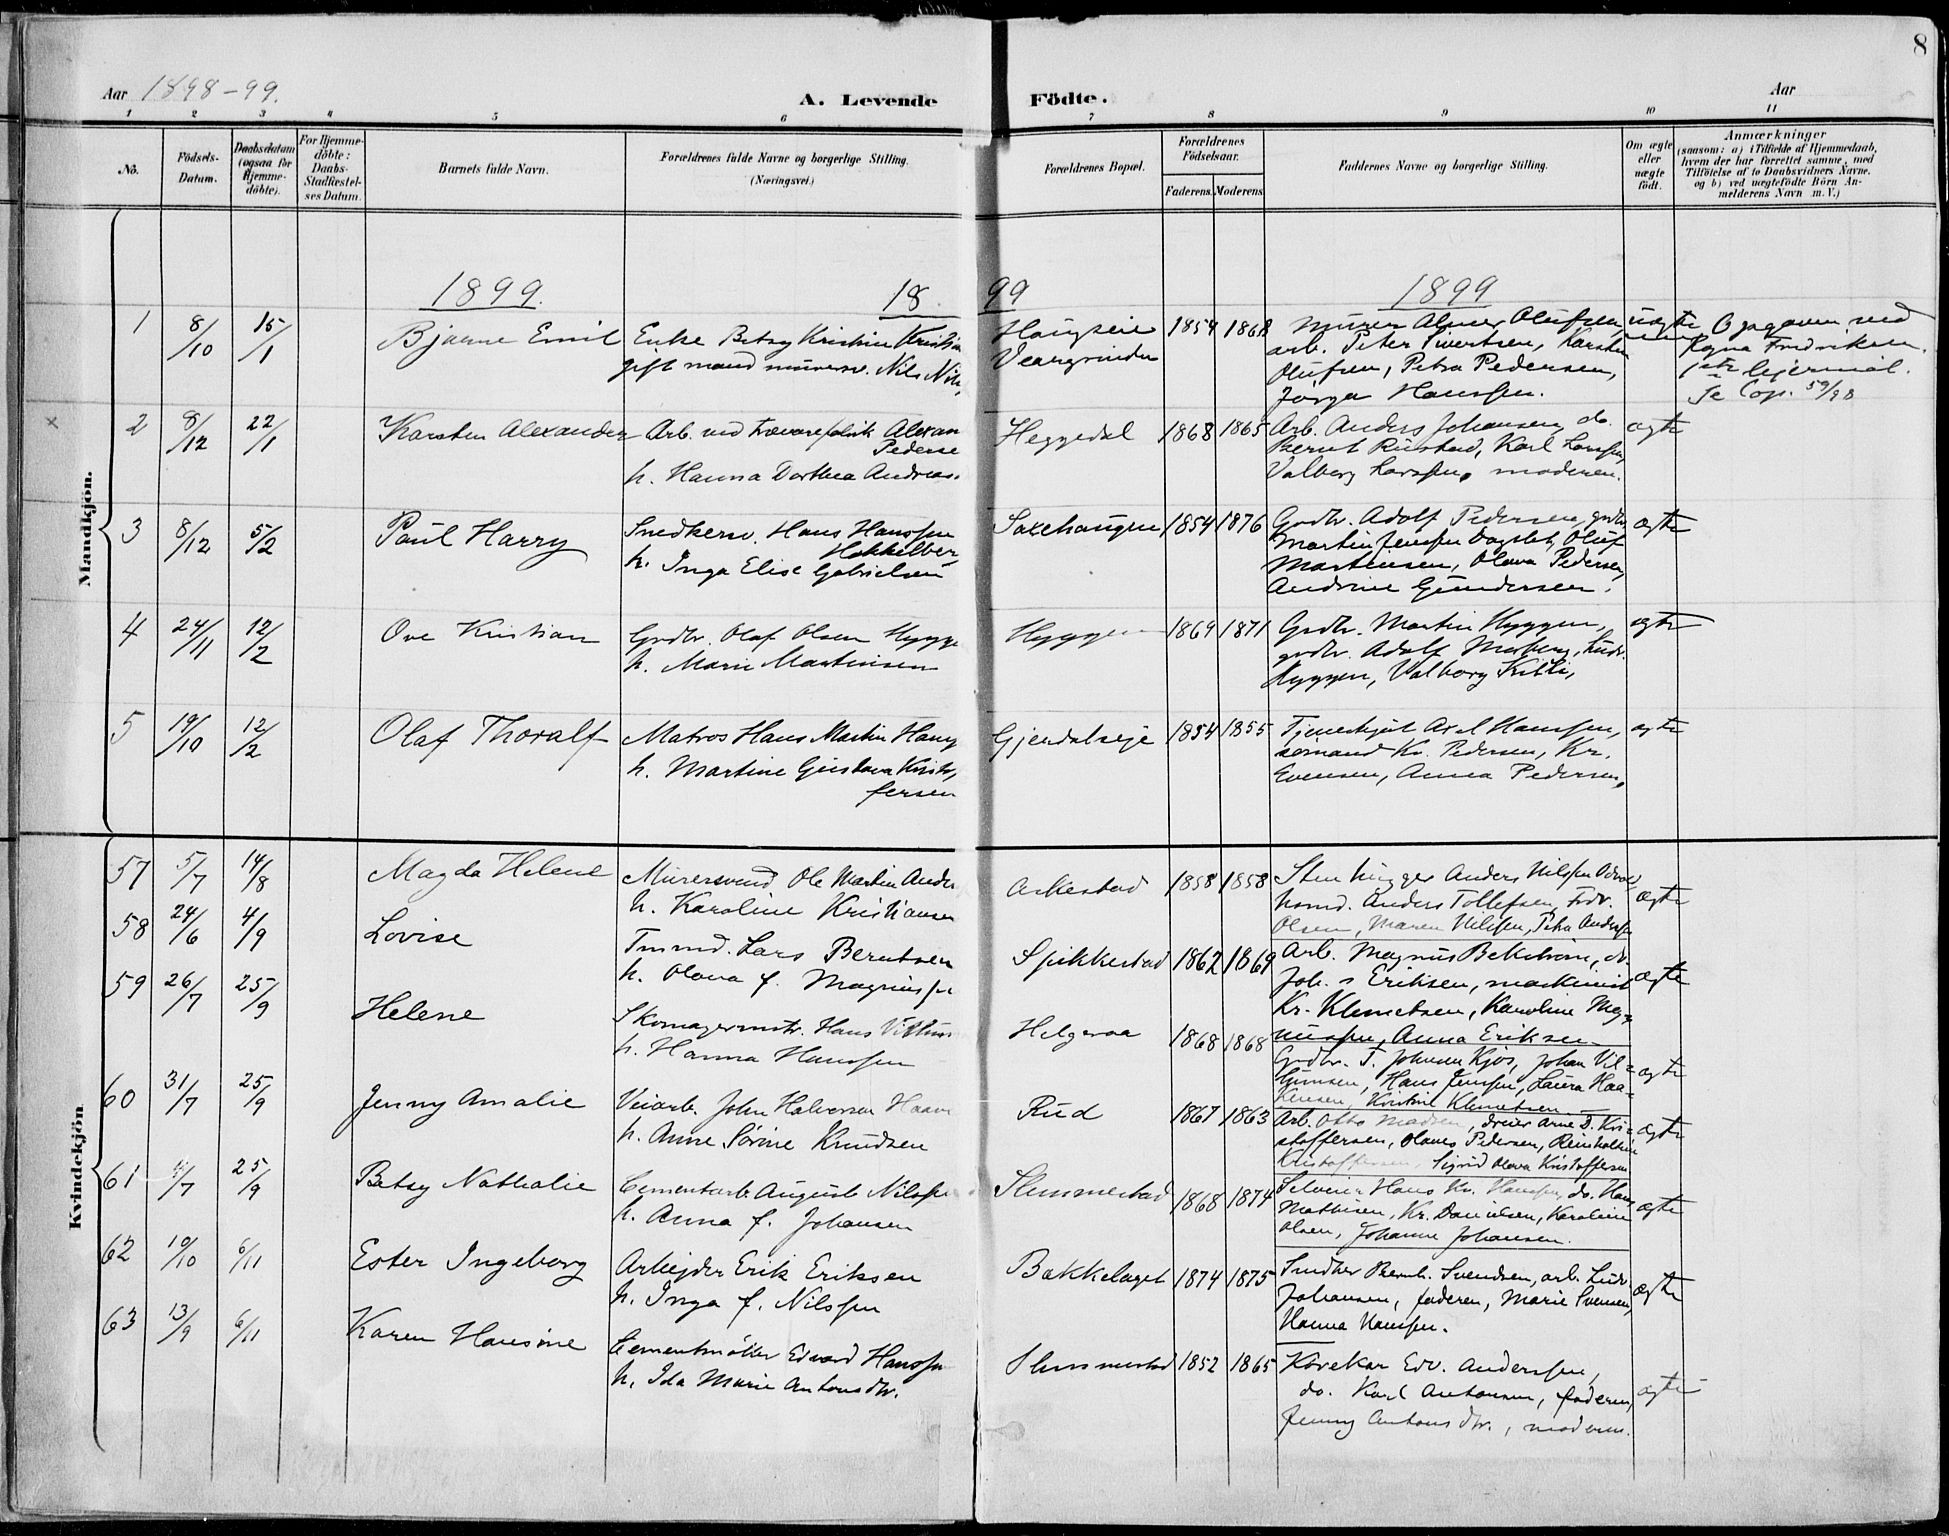 8
Aar 1898-99.
A. Levende Födte.
Aar
1 2 3 4 5 6 7 8 9 10 11
No.
Födsels-Datum.
Daabsdatum (ogsaa for Hjemme-döbte).
For Hjemme-döbte: Daabs-Stadfæstel-ses Datum.
Barnets fulde Navn.
Forældrenes fulde Navne og borgerlige Stilling.
(Næringsvei.)
Forældrenes Bopæl.
Forældrenes Födselsaar.
Faderens. Moderens.
Faddernes Navne og borgerlige Stilling.
Om ægte eller uægte födt.
Anmærkninger
(saasom: a) i Tilfælde af Hjemmedaab,
hvem der har forrettet samme, med
Tilföielse af to Daabsvidners Navne.
og b) ved uægtefödte Börn An-
melderens Navn m. V.)
Mandkjön.
1899. 1899 1899
1 8/10 15/1 Bjarne Emil
Enke Betsy Kristine
gift mand murersv. Nils
Haugseie
1854 1868
Murer Olufsen
arb. Peter Sivertsen, Karsten
Olufsen, Petra Pedersen,
Jörga Hanssen.
uægte
Opgaven ved
Ragna Fredriksen,
59/98
x
2 8/12 22/1 Karsten Alexander
Arb. ved trævarefabrik Alexan
Pederse
h. Hanna Dorthea Andreas
Heggedal
1868 1865
Arb. Anders Johansen, do.
Bernt Rustad, Karl Larssen,
Valborg Larssen, moderen.
ægte
3 8/12 5/2 Paul Harry
Snedkersv. Hans Hanssen
Hakkelber
h. Inga Elise Gabrielsen
Saxehaugen
1854 1876
Grdbr. Adolf Pedersen, grdbr.
Martin Jenssen Dagslet, Oluf
Martinsen, Olava Pedersen,
Andrine Gundersen.
ægte
4 24/11 12/2 Ove Kristian
Grdbr. Olaf Olsen Hygge
h. Marie Martinsen
Hyggen
1869 1871
Grdbr. Martin Hyggen,
grdbr. Adolf Morberg, Ludv.
Hyggen, Valborg
ægte
5 19/10 12/2 Olaf Thoralf
Matros Hans Martin Hans
h. Martine Gustava Kristo
fersen
Gjerdalseje
1854 1855
Tjenerkjöt Axel Hanssen,
sömand Kr. Pedersen, Kr.
Evensen, Anna Pedersen,
ægte
Kvindekjön.
57 5/7 14/8 Magda Helene
Murersvend Ole Martin Ander
h. Karoline Kristiansen
Arkestad
1858 1858
Stenhugger Anders Nilssen
Anders Tollefsen, Fredr.
Olsen, Maren Nilssen, Petra Anderssen
ægte
58 24/6 4/9 Lovise
Tmmd. Lars Berntsen
h. Olava f. Magnussen
Spikkestad
1862 1869
Arb. Magnus Bekström, do.
Joh.s Eriksen, maskinist
Kr. Klemetsen, Karoline Mag-
nussen, Anna Eriksen
ægte
59 26/7 25/9 Helene
Skomagermstr. Hans
h. Hanna Hanssen
Helgeraa
1868 1868
Grdbr. T. Johnsen Kjos, Johan Vil-
Hans Jenssen, Laura Haa-
kensen, Kristine Klemetsen
ægte
60 31/7 25/9 Jenny Amalie
Veiarb. John Halvorsen Haave
h. Anne Sörine Knudsen
Rud
1867 1863
Arb. Otto Madsen, dreier Arne D. Kri-
stoffersen, Olaves Pedersen,
Kristoffersen, Sigrid Olava Kristoffersen
ægte
61 /7 25/9 Betsy Nathalie
Cementarb. August Nilssen
h. Anna f. Johansen
Slemmestad
1868 1874
Selveier Hans Kr. Hanssen, do. Hans
Mathisen, Kr. Danielsen, Karoline
Olsen, Johanne Johansen.
ægte
62 10/10 6/11 Ester Ingeborg
Arbejder Erik Eriksen
h. Inga f. Nilssen
Bakkelaget
1874 1875
Snedker Bernh. Svendsen, arb. Ludv.
Johansen, faderen, Marie Svensen,
Hanna Hanssen.
ægte
63 13/9 6/11 Karen Hansine
Cementmöller Edvard Hanssen
h. Ida Marie Antonsdtr.
Slemmestad
1852 1865
Edv. Anderssen,
do. Karl Antonsen, faderen,
Jenny Antonsdtr., moderen.
ægte